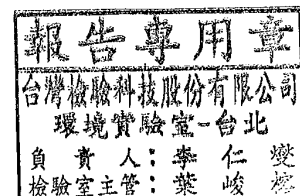 報告專用章
台灣檢驗科技股份有限公司
環境實驗室-台北
負責人：李仁燮
檢驗室主管：葉峻